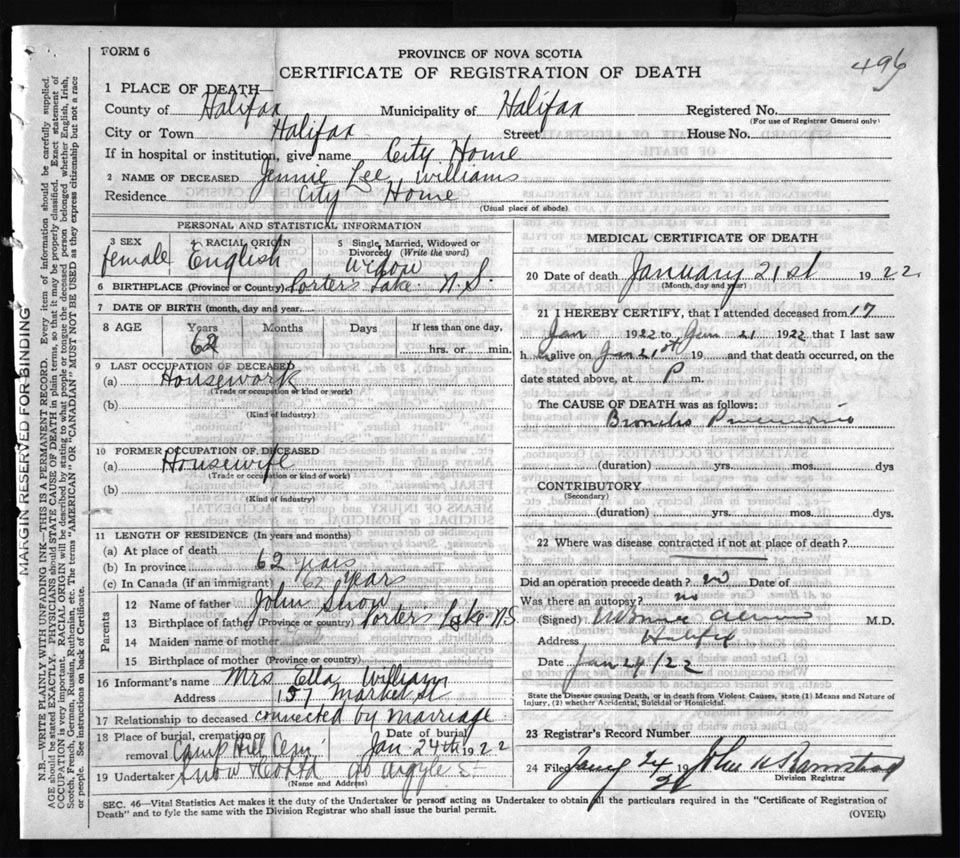 FORM 6
PROVINCE OF NOVA SCOTIA
496
CERTIFICATE OF REGISTRATION OF DEATH
1 PLACE OF DEATH—
County of Halifax Municipality of Halifax Registered No.
(For use of Registrar General only)
City or Town Halifax Street House No.
If in hospital or institution, give name City Home
2 NAME OF DECEASED Jennie Lee Williams
Residence City Home
(Usual place of abode)
PERSONAL AND STATISTICAL INFORMATION
3 SEX female
4 RACIAL ORIGIN English
5 Single, Married, Widowed or Divorced (Write the word) Widow
6 BIRTHPLACE (Province or Country) Porters Lake N.S.
7 DATE OF BIRTH (month, day and year)
8 AGE Years Months Days If less than one day,
62 hrs. or min.
9 LAST OCCUPATION OF DECEASED
(a) Housework
(Trade or occupation or kind or work)
(b)
(Kind of industry)
10 FORMER OCCUPATION OF DECEASED
(a) Housewife
(Trade or occupation or kind of work)
(b)
(Kind of industry)
11 LENGTH OF RESIDENCE (In years and months)
(a) At place of death
(b) In province 62 years
(c) In Canada (if an immigrant) 62 years
Parents
12 Name of father John Snow
13 Birthplace of father (Province or country) Porters Lake N.S.
14 Maiden name of mother
15 Birthplace of mother (Province or country)
16 Informant's name Mrs Ella William
Address 157 Market St
17 Relationship to deceased connected by marriage
18 Place of burial, cremation or removal Camp Hill Cem Date of burial Jan. 24th 1922
19 Undertaker Snow 90 Argyle St
(Name and Address)
MEDICAL CERTIFICATE OF DEATH
20 Date of death January 21st 1922
(Month, day and year)
21 I HEREBY CERTIFY, that I attended deceased from 17
Jan 1922 to Jan 21 1922 that I last saw
h alive on Jan 21st 19 and that death occurred, on the
date stated above, at P m.
The CAUSE OF DEATH was as follows:
Broncho Pneumonia
(duration) yrs. mos. dys
CONTRIBUTORY
(Secondary)
(duration) yrs. mos. dys.
22 Where was disease contracted if not at place of death?
Did an operation precede death? no Date of
Was there an autopsy? no
(Signed) M.D.
Address Halifax
Date Jan 24/22
State the Disease causing Death, or in death from Violent Causes, state (1) Means and Nature of
Injury, (2) whether Accidental, Suicidal or Homicidal.
23 Registrar's Record Number
24 Filed Jany 24 19 22 John
Division Registrar
SEC. 46—Vital Statistics Act makes it the duty of the Undertaker or person acting as Undertaker to obtain all the particulars required in the "Certificate of Registration of
Death" and to fyle the same with the Division Registrar who shall issue the burial permit.
(OVER)
MARGIN RESERVED FOR BINDING
N.B.—WRITE PLAINLY WITH UNFADING INK—THIS IS A PERMANENT RECORD. Every item of information should be carefully supplied.
AGE should be stated EXACTLY. PHYSICIANS should STATE CAUSE OF DEATH in plain terms, so that it may be properly classified. Exact statement of
OCCUPATION is very important. RACIAL ORIGIN will be described by stating to what people or tongue the deceased person belonged whether English, Irish,
Scotch, French, German, Russian, Ruthenian, etc. The terms "AMERICAN" or "CANADIAN" MUST NOT BE USED as they express citizenship but not a race
or people. See instructions on back of Certificate.